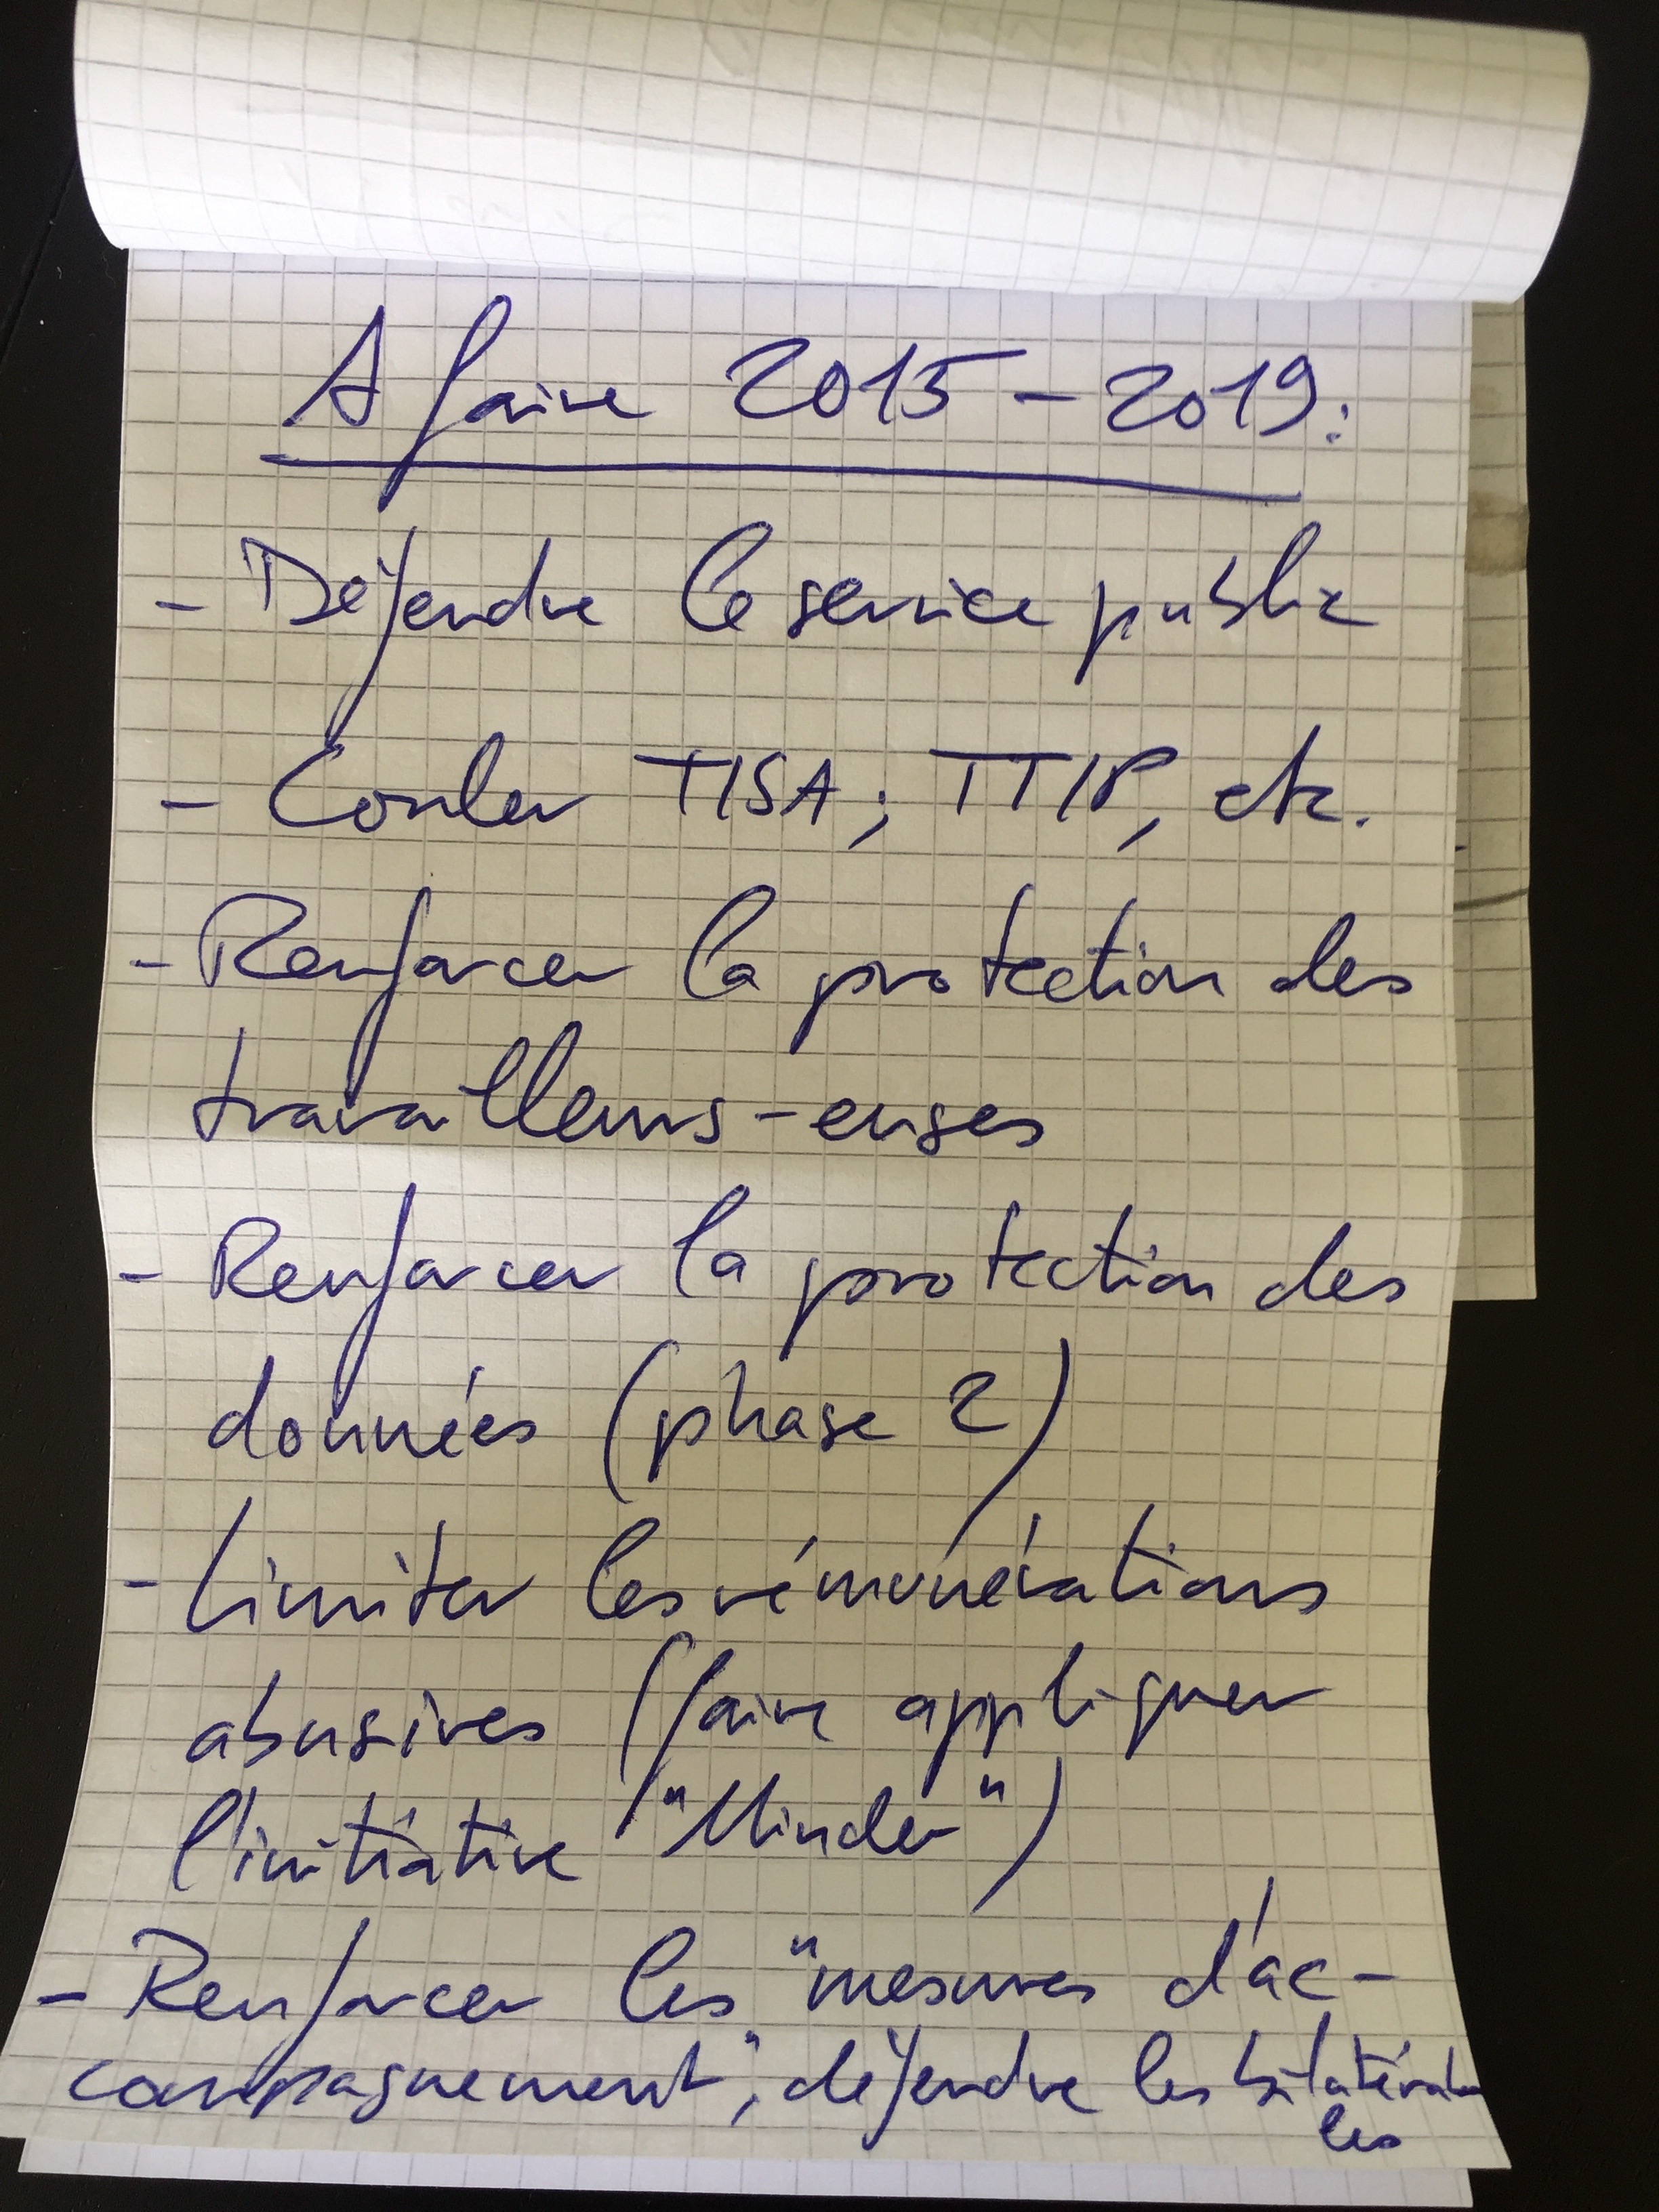 A faire 2015 – 2019:
– Défendre le service public
– Couler TISA; TTIP, etc.
– Renforcer la protection des
travailleurs-euses
– Renforcer la protection des
données (phase 2)
– Limiter les rémunérations
abusives (faire appliquer
l'initiative "Minder")
– Renforcer les "mesures d'ac-
compagnement", défendre les bilatérales